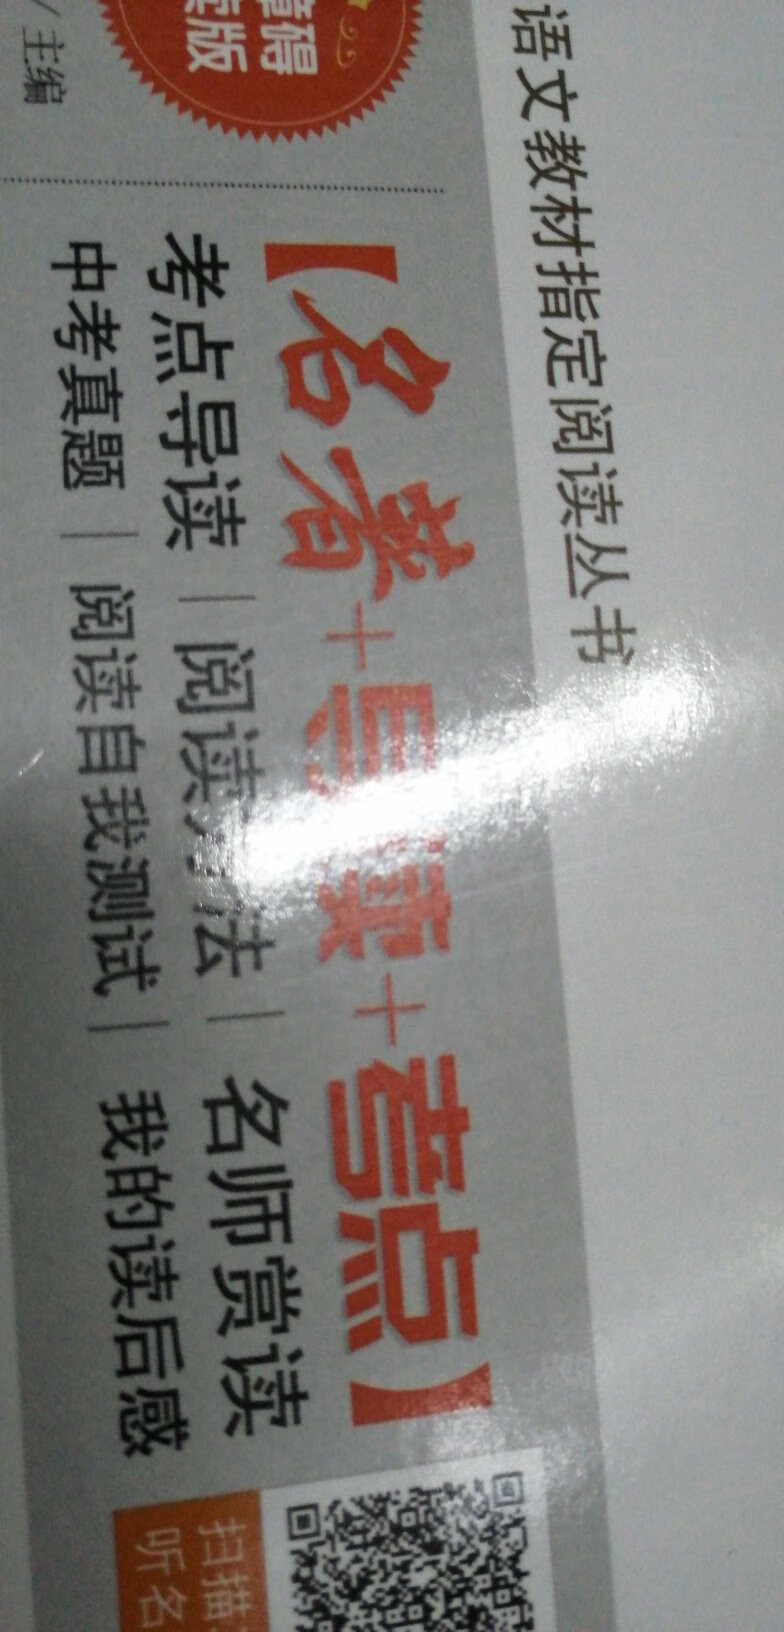 语文教材指定阅读丛书
【名著+导读+考点】
考点导读｜阅读方法｜名师赏读
中考真题｜阅读自我测试｜我的读后感
障碍
读版
/ 主编
扫描
听名